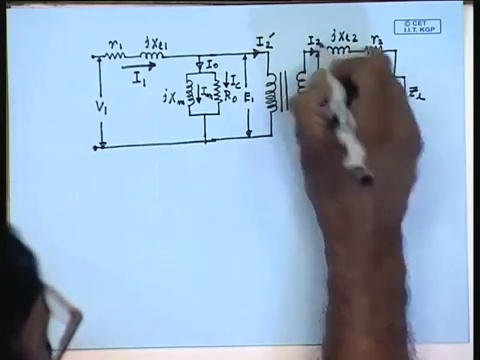 © CET
I.I.T. KGP
r1 jXl1 I2' I2 jXl2 r2
I1 I0
V1 jXm Im Ic R0 E1 ZL